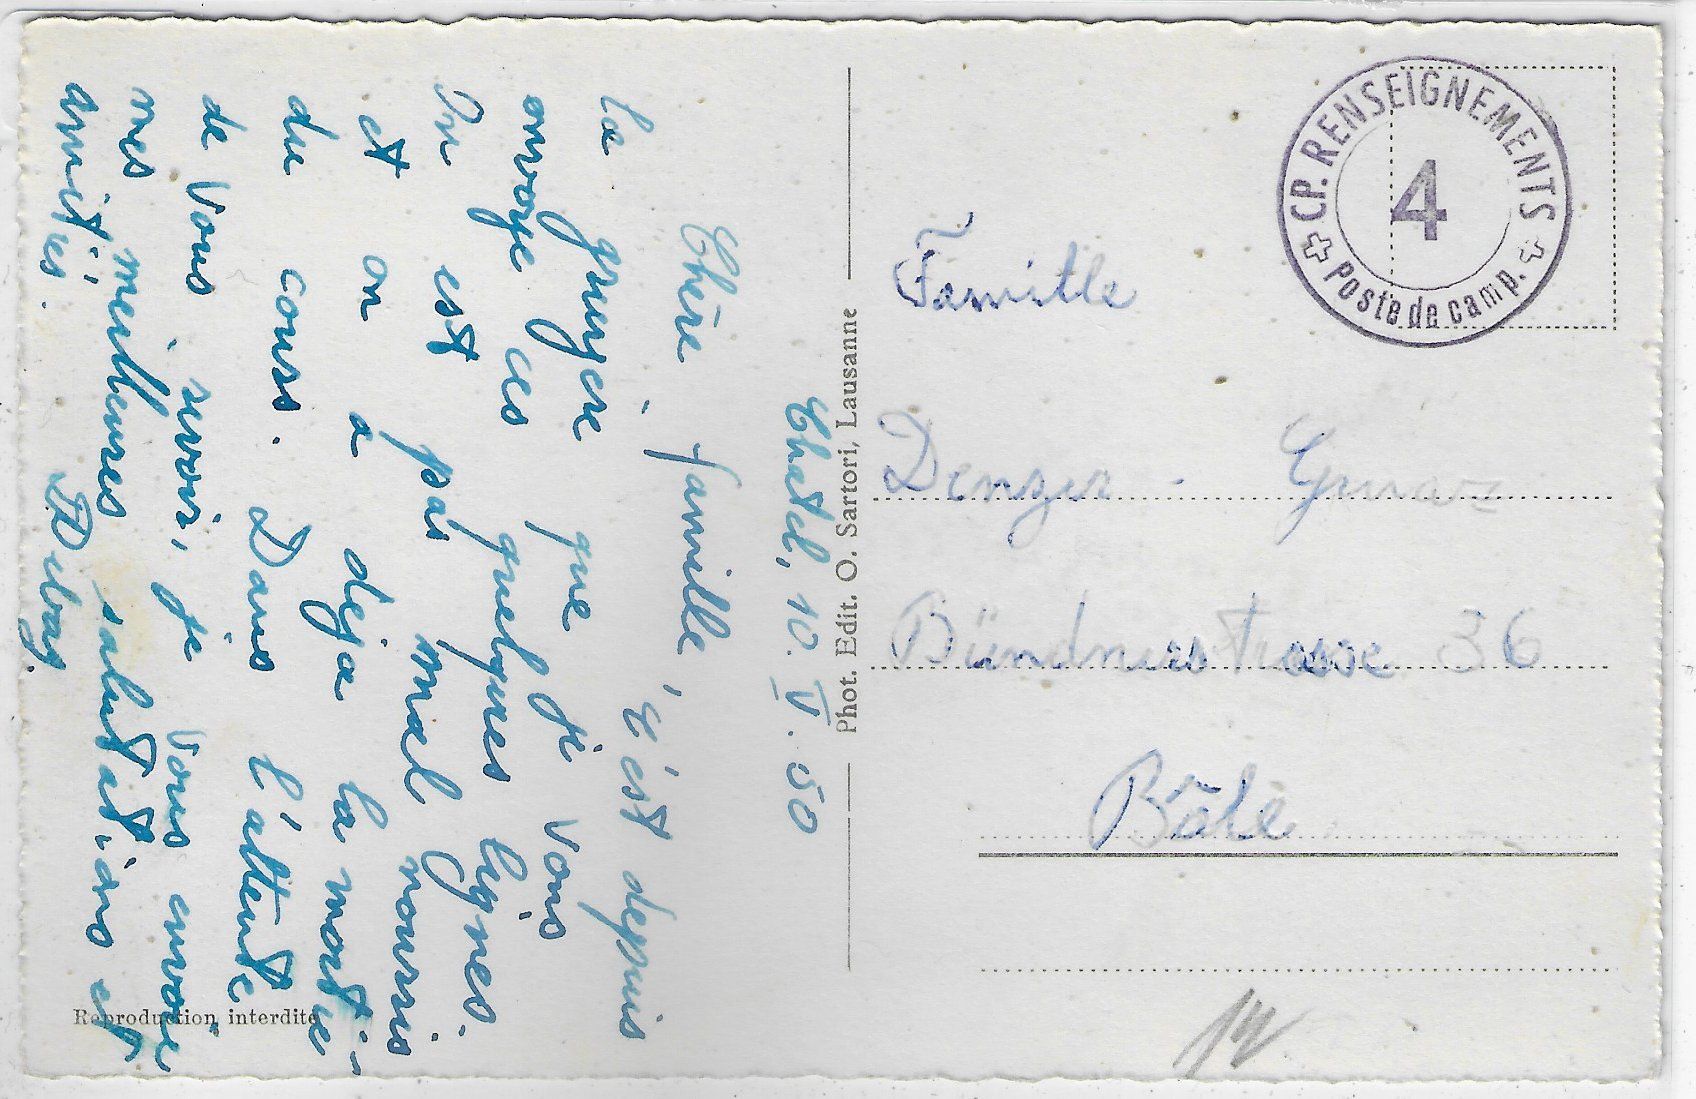 Châtel, 10. V. 50
Chère famille,
C'est depuis
la gruyère que je vous
envoye ces quelques lignes.
On est pas mal nourris
et on a déja la moitié
du cours. Dans l'attente
de Vous revoir, je Vous envoie
mes meilleures salutations et
amitiés.
Phot. Edit. O. Sartori, Lausanne
Reproduction interdite
CP. RENSEIGNEMENTS
4
Poste de camp.
Famille
Denzer -
Bündnerstrasse 36
Bâle